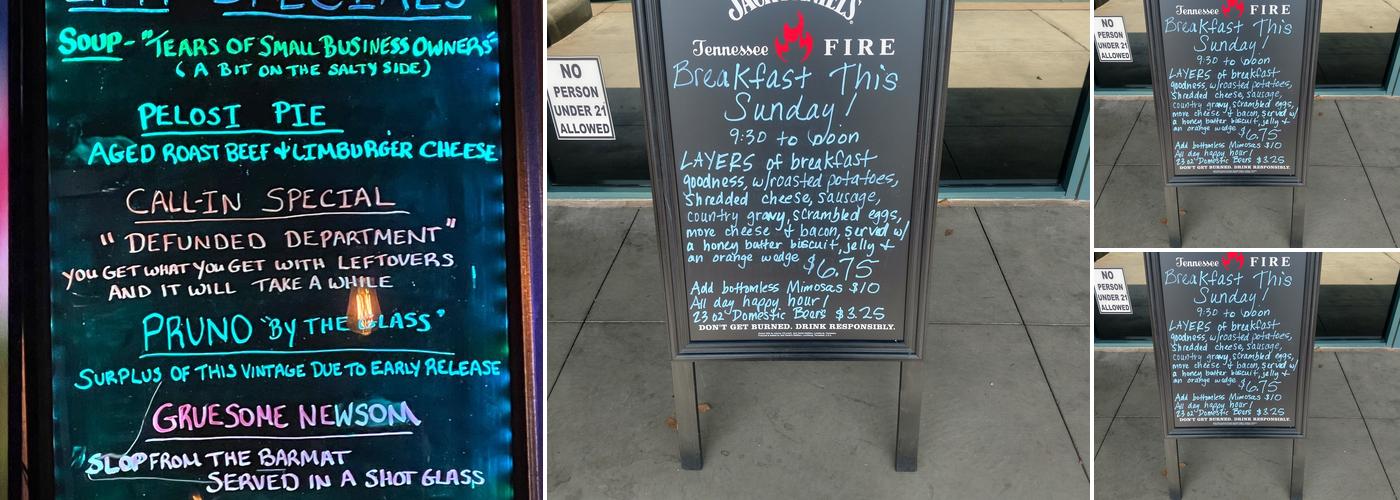 SPECIALS
SOUP - "TEARS OF SMALL BUSINESS OWNERS"
(A BIT ON THE SALTY SIDE)
PELOSI PIE
AGED ROAST BEEF & LIMBURGER CHEESE
CALL-IN SPECIAL
"DEFUNDED DEPARTMENT"
YOU GET WHAT YOU GET WITH LEFTOVERS
AND IT WILL TAKE A WHILE
PRUNO "BY THE GLASS"
SURPLUS OF THIS VINTAGE DUE TO EARLY RELEASE
GRUESOME NEWSOM
SLOP FROM THE BARMAT
SERVED IN A SHOT GLASS
JACK DANIEL'S
Tennessee FIRE
NO
PERSON
UNDER 21
ALLOWED
Breakfast This
Sunday!
9:30 to Noon
LAYERS of breakfast
goodness, w/roasted potatoes,
Shredded cheese, sausage,
country gravy, scrambled eggs,
more cheese + bacon, served w/
a honey butter biscuit, jelly +
an orange wedge $6.75
Add bottomless Mimosas $10
All day happy hour!
23 oz Domestic Beers $3.25
DON'T GET BURNED. DRINK RESPONSIBLY.
Tennessee FIRE
NO
PERSON
UNDER 21
ALLOWED
Breakfast This
Sunday!
9:30 to Noon
LAYERS of breakfast
goodness, w/roasted potatoes,
Shredded cheese, sausage,
country gravy, scrambled eggs,
more cheese + bacon, served w/
a honey butter biscuit, jelly +
an orange wedge $6.75
Add bottomless Mimosas $10
All day happy hour!
23 oz Domestic Beers $3.25
DON'T GET BURNED. DRINK RESPONSIBLY.
Tennessee FIRE
NO
PERSON
UNDER 21
ALLOWED
Breakfast This
Sunday!
9:30 to Noon
LAYERS of breakfast
goodness, w/roasted potatoes,
Shredded cheese, sausage,
country gravy, scrambled eggs,
more cheese + bacon, served w/
a honey butter biscuit, jelly +
an orange wedge $6.75
Add bottomless Mimosas $10
All day happy hour!
23 oz Domestic Beers $3.25
DON'T GET BURNED. DRINK RESPONSIBLY.